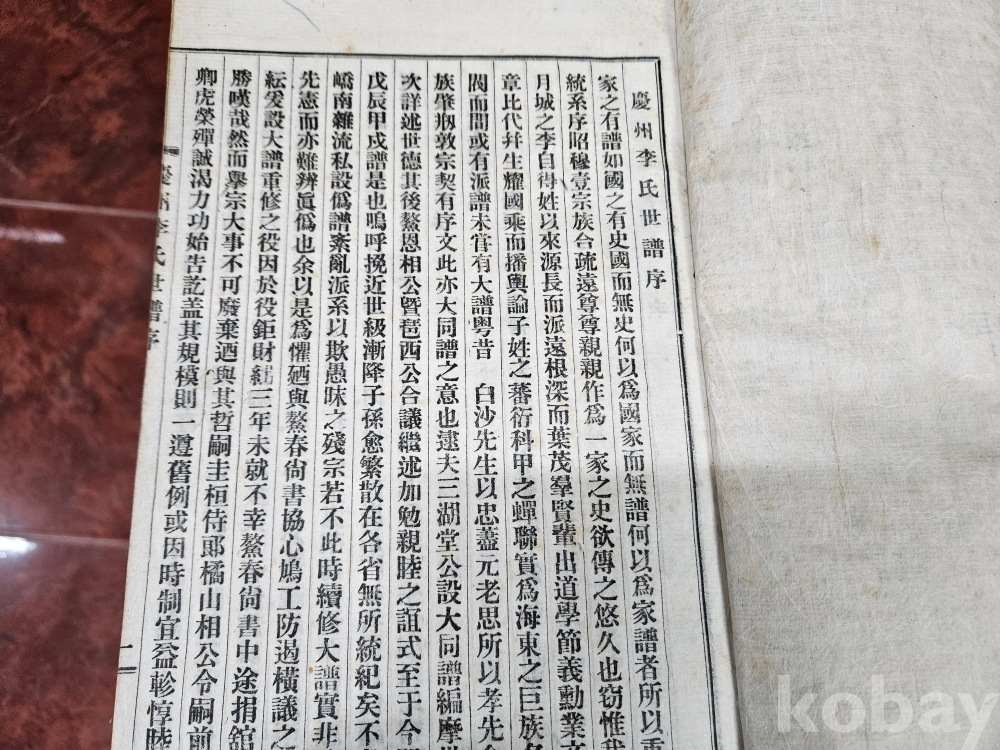 慶州李氏世譜序
家之有譜如國之有史國而無史何以爲國家而無譜何以爲家譜者所以重
統系序昭穆壹宗族合疏遠尊尊親親作爲一家之史欲傳之悠久也窃惟我
月城之李自得姓以來源長而派遠根深而葉茂羣賢輩出道學節義勳業文
章比代幷生耀國乘而播輿論子姓之蕃衍科甲之蟬聯實爲海東之巨族名
閥而間或有派譜未甞有大譜粤昔 白沙先生以忠藎元老思所以孝先
族肇刱敦宗契有序文此亦大同譜之意也逮夫三湖堂公設大同譜編摩
次詳述世德其後鰲恩相公曁琶西公合議繼述加勉親睦之誼式至于今
戊辰甲戍譜是也嗚呼挽近世級漸降子孫愈繁散在各省無所統紀矣不
嶠南雜流私設僞譜紊亂派系以欺愚昧之殘宗若不此時續修大譜實非
先憲而亦難辨眞僞也余以是爲懼廼與鰲春尙書協心鳩工防遏橫議之
紜爰設大譜重修之役因於役鉅財絀三年未就不幸鰲春尙書中途捐舘
勝嘆哉然而擧宗大事不可廢棄迺與其哲嗣圭桓侍郞橘山相公令嗣前
卿虎榮殫誠渴力功始告訖盖其規模則一遵舊例或因時制宜益軫惇睦
慶州李氏世譜序
一
kobay